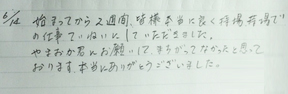 6/12 始まってから2週間、皆様本当に良く持場持場で
の仕事ていねいにしていただきました。
やまおか君にお願いして、まちがってなかったと思って
おります。本当にありがとうございました。